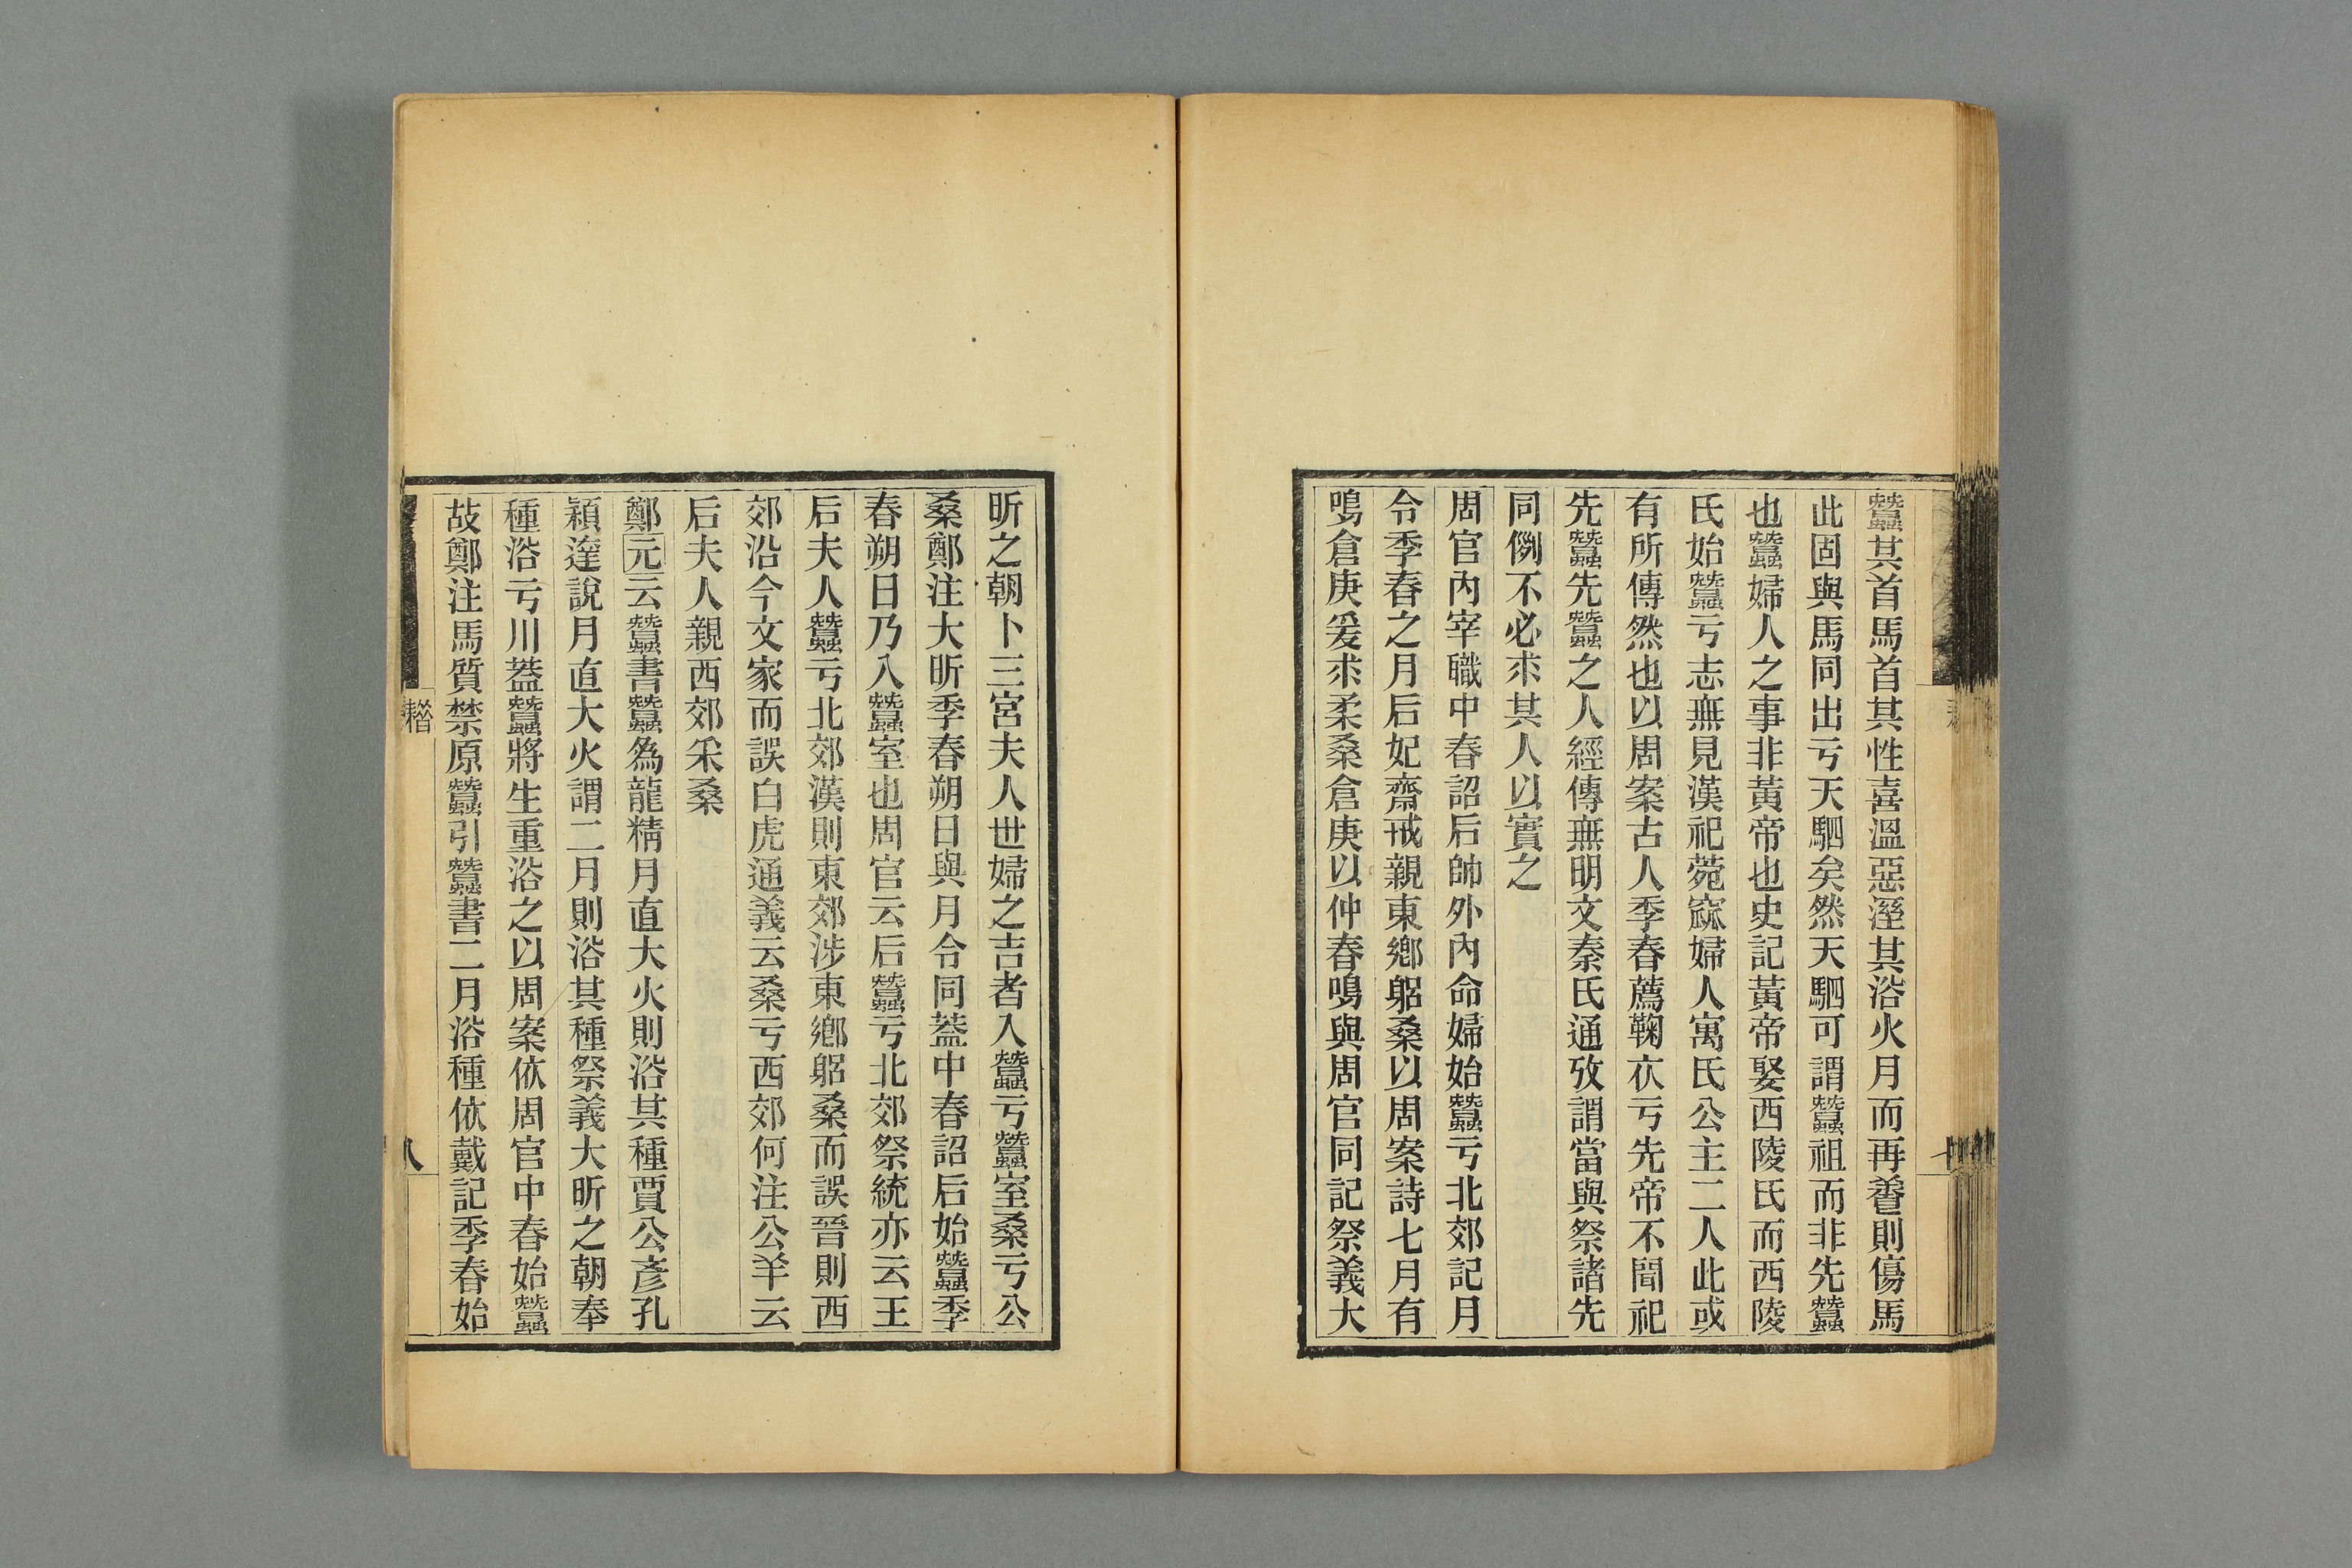 蠶其首馬首其性喜溫惡溼其浴火月而再養則傷馬
此固與馬同出亏天駟矣然天駟可謂蠶祖而非先蠶
也蠶婦人之事非黃帝也史記黃帝娶西陵氏而西陵
氏始蠶亏志無見漢祀菀窳婦人寓氏公主二人此或
有所傳然也以周案古人季春薦鞠衣亏先帝不聞祀
先蠶先蠶之人經傳無明文秦氏通攷謂當與祭諸先
同例不必求其人以實之
周官內宰職中春詔后帥外內命婦始蠶亏北郊記月
令季春之月后妃齋戒親東鄉躳桑以周案詩七月有
鳴倉庚爰求柔桑倉庚以仲春鳴與周官同記祭義大
昕之朝卜三宮夫人世婦之吉者入蠶亏蠶室桑亏公
桑鄭注大昕季春朔日與月令同蓋中春詔后始蠶季
春朔日乃入蠶室也周官云后蠶亏北郊祭統亦云王
后夫人蠶亏北郊漢則東郊涉東鄉躳桑而誤晉則西
郊沿今文家而誤白虎通義云桑亏西郊何注公羊云
后夫人親西郊采桑
鄭元云蠶書蠶為龍精月直大火則浴其種賈公彥孔
穎達說月直大火謂二月則浴其種祭義大昕之朝奉
種浴亏川蓋蠶將生重浴之以周案依周官中春始蠶
故鄭注馬質禁原蠶引蠶書二月浴種依戴記季春始
八